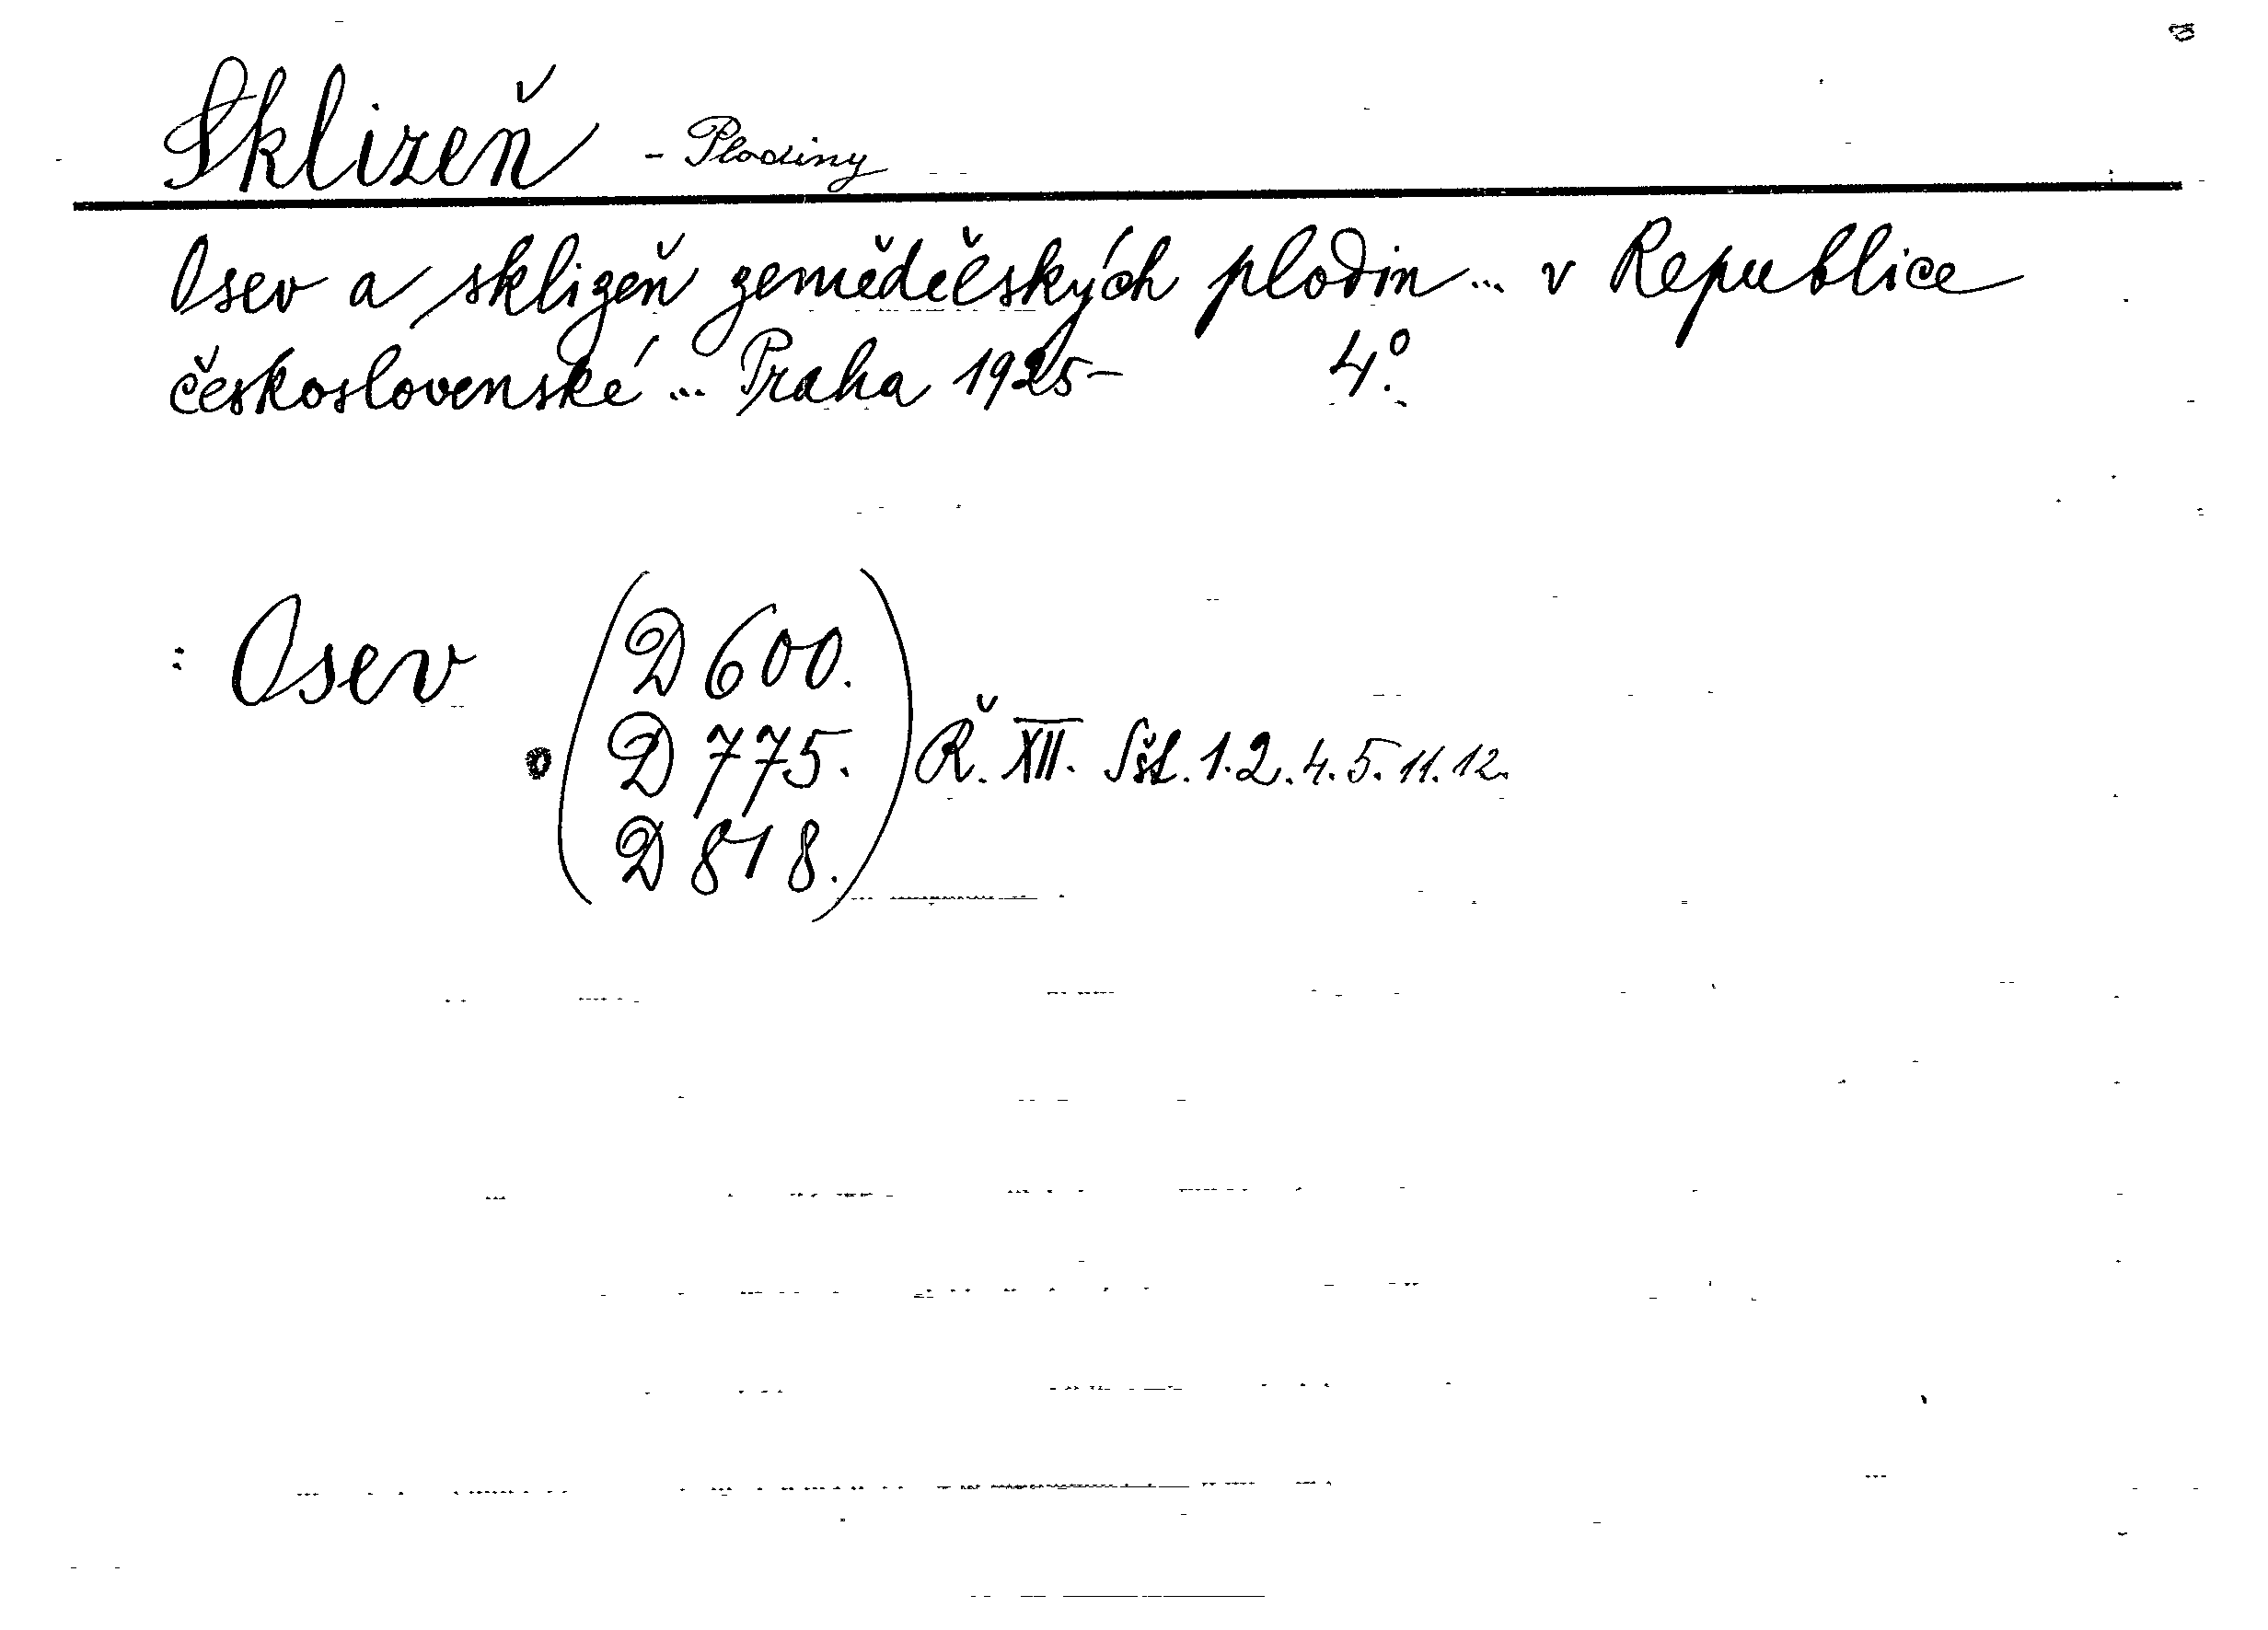 Sklizeň - Plodiny
Osev a sklizeň zemědělských plodin... v Republice
československé... Praha 1925- 4º.
: Osev
(D 600.
D 775.
D 818.) Ř. XII. Sšt. 1. 2. 4. 5. 11. 12.